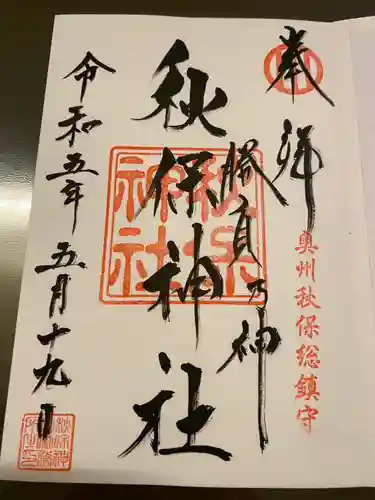 奉拝
奥州秋保総鎮守
勝負の神
秋保神社
秋保神社
令和五年五月十九日